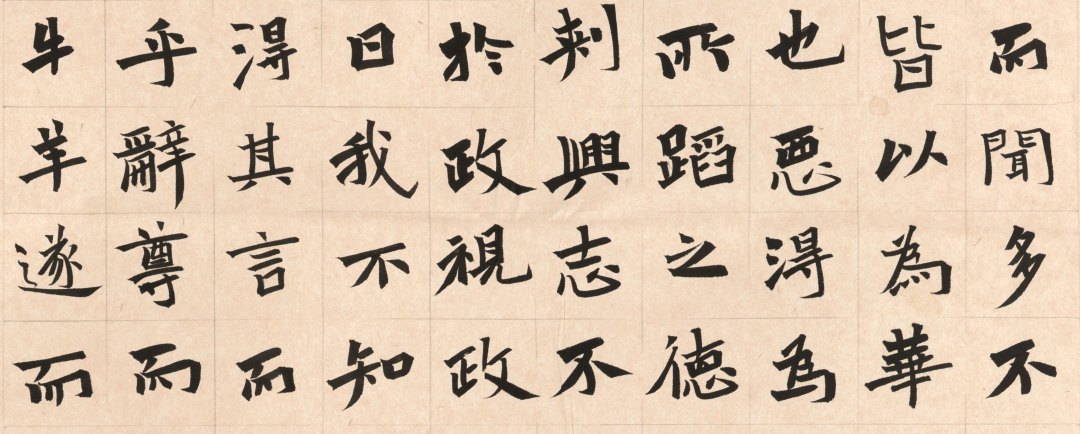 而聞多不
皆以為華
也惡淂為
所蹈之德
刾興志不
於政視政
日我不知
淂其言而
乎辭尊而
牛羊遂而